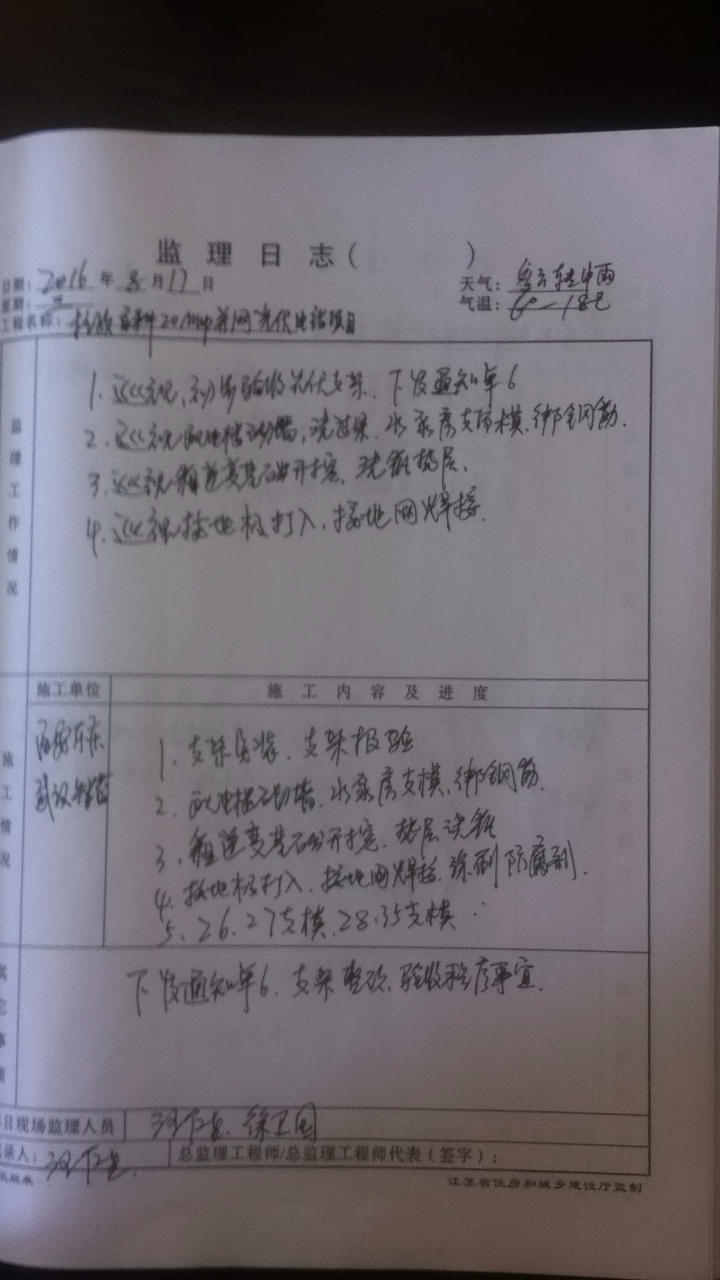 监理日志( )
日期: 2016 年 8 月 17 日 天气: 多云转中雨
星期: 气温: 6°—18℃
工程名称: 20MWp并网光伏电站项目
监理工作情况
1. 巡视,初步验收光伏支架、下发通知单6
2. 巡视配电楼砌墙,浇过梁、水泵房支顶模、绑钢筋.
3. 巡视箱逆变基础开挖、浇砼垫层.
4. 巡视接地极打入、接地网焊接.
施工单位 施工内容及进度
施工情况
1. 支架安装、支架报验
2. 配电楼砌墙、水泵房支模、绑钢筋.
3. 箱逆变基础开挖、垫层浇砼
4. 接地极打入、接地网焊接、涂刷防腐剂.
5. 26.27支模、28.35支模
其它事项
下发通知单6、支架整改、验收程序事宜.
目现场监理人员 徐卫国
录人: 总监理工程师/总监理工程师代表(签字):
江苏省住房和城乡建设厅监制